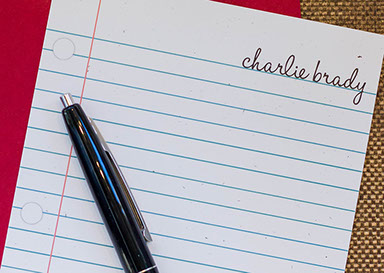 charlie brady